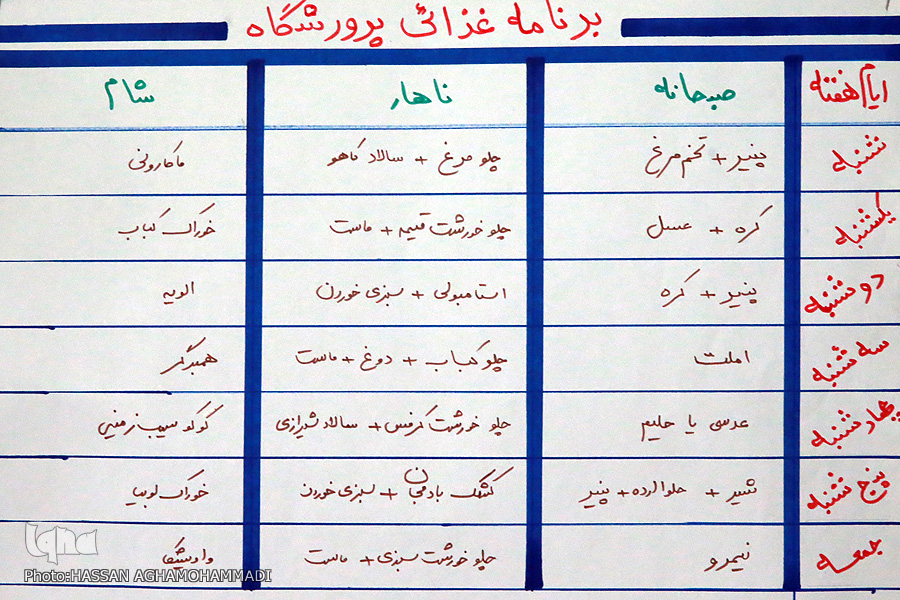 برنامه غذائی پرورشگاه
ایام هفته صبحانه ناهار شام
شنبه پنیر + تخم مرغ چلو مرغ + سالاد کاهو ماکارونی
یکشنبه کره + عسل چلو خورشت قیمه + ماست خوراک کباب
دوشنبه پنیر + کره استامبولی + سبزی خوردن الویه
سه شنبه املت چلو کباب + دوغ + ماست همبرگر
چهارشنبه عدسی یا حلیم چلو خورشت کرفس + سالاد شیرازی کوکو سیب زمینی
پنج شنبه شیر + حلوا ارده + پنیر کشک بادمجان + سبزی خوردن خوراک لوبیا
جمعه نیمرو چلو خورشت سبزی + ماست واویشکا
iqna
Photo:HASSAN AGHAMOHAMMADI